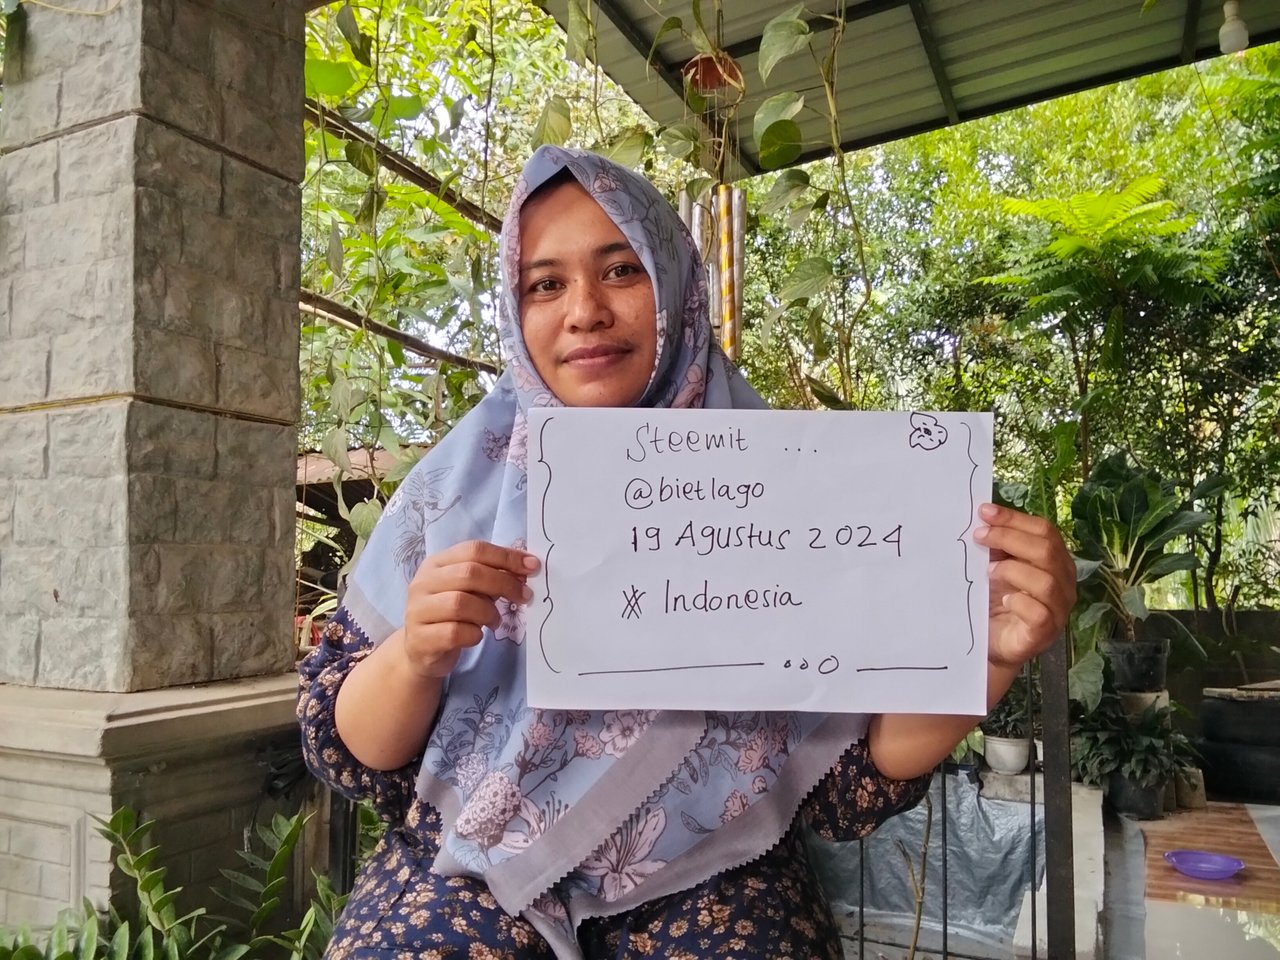 Steemit ...
@bietlago
19 Agustus 2024
# Indonesia